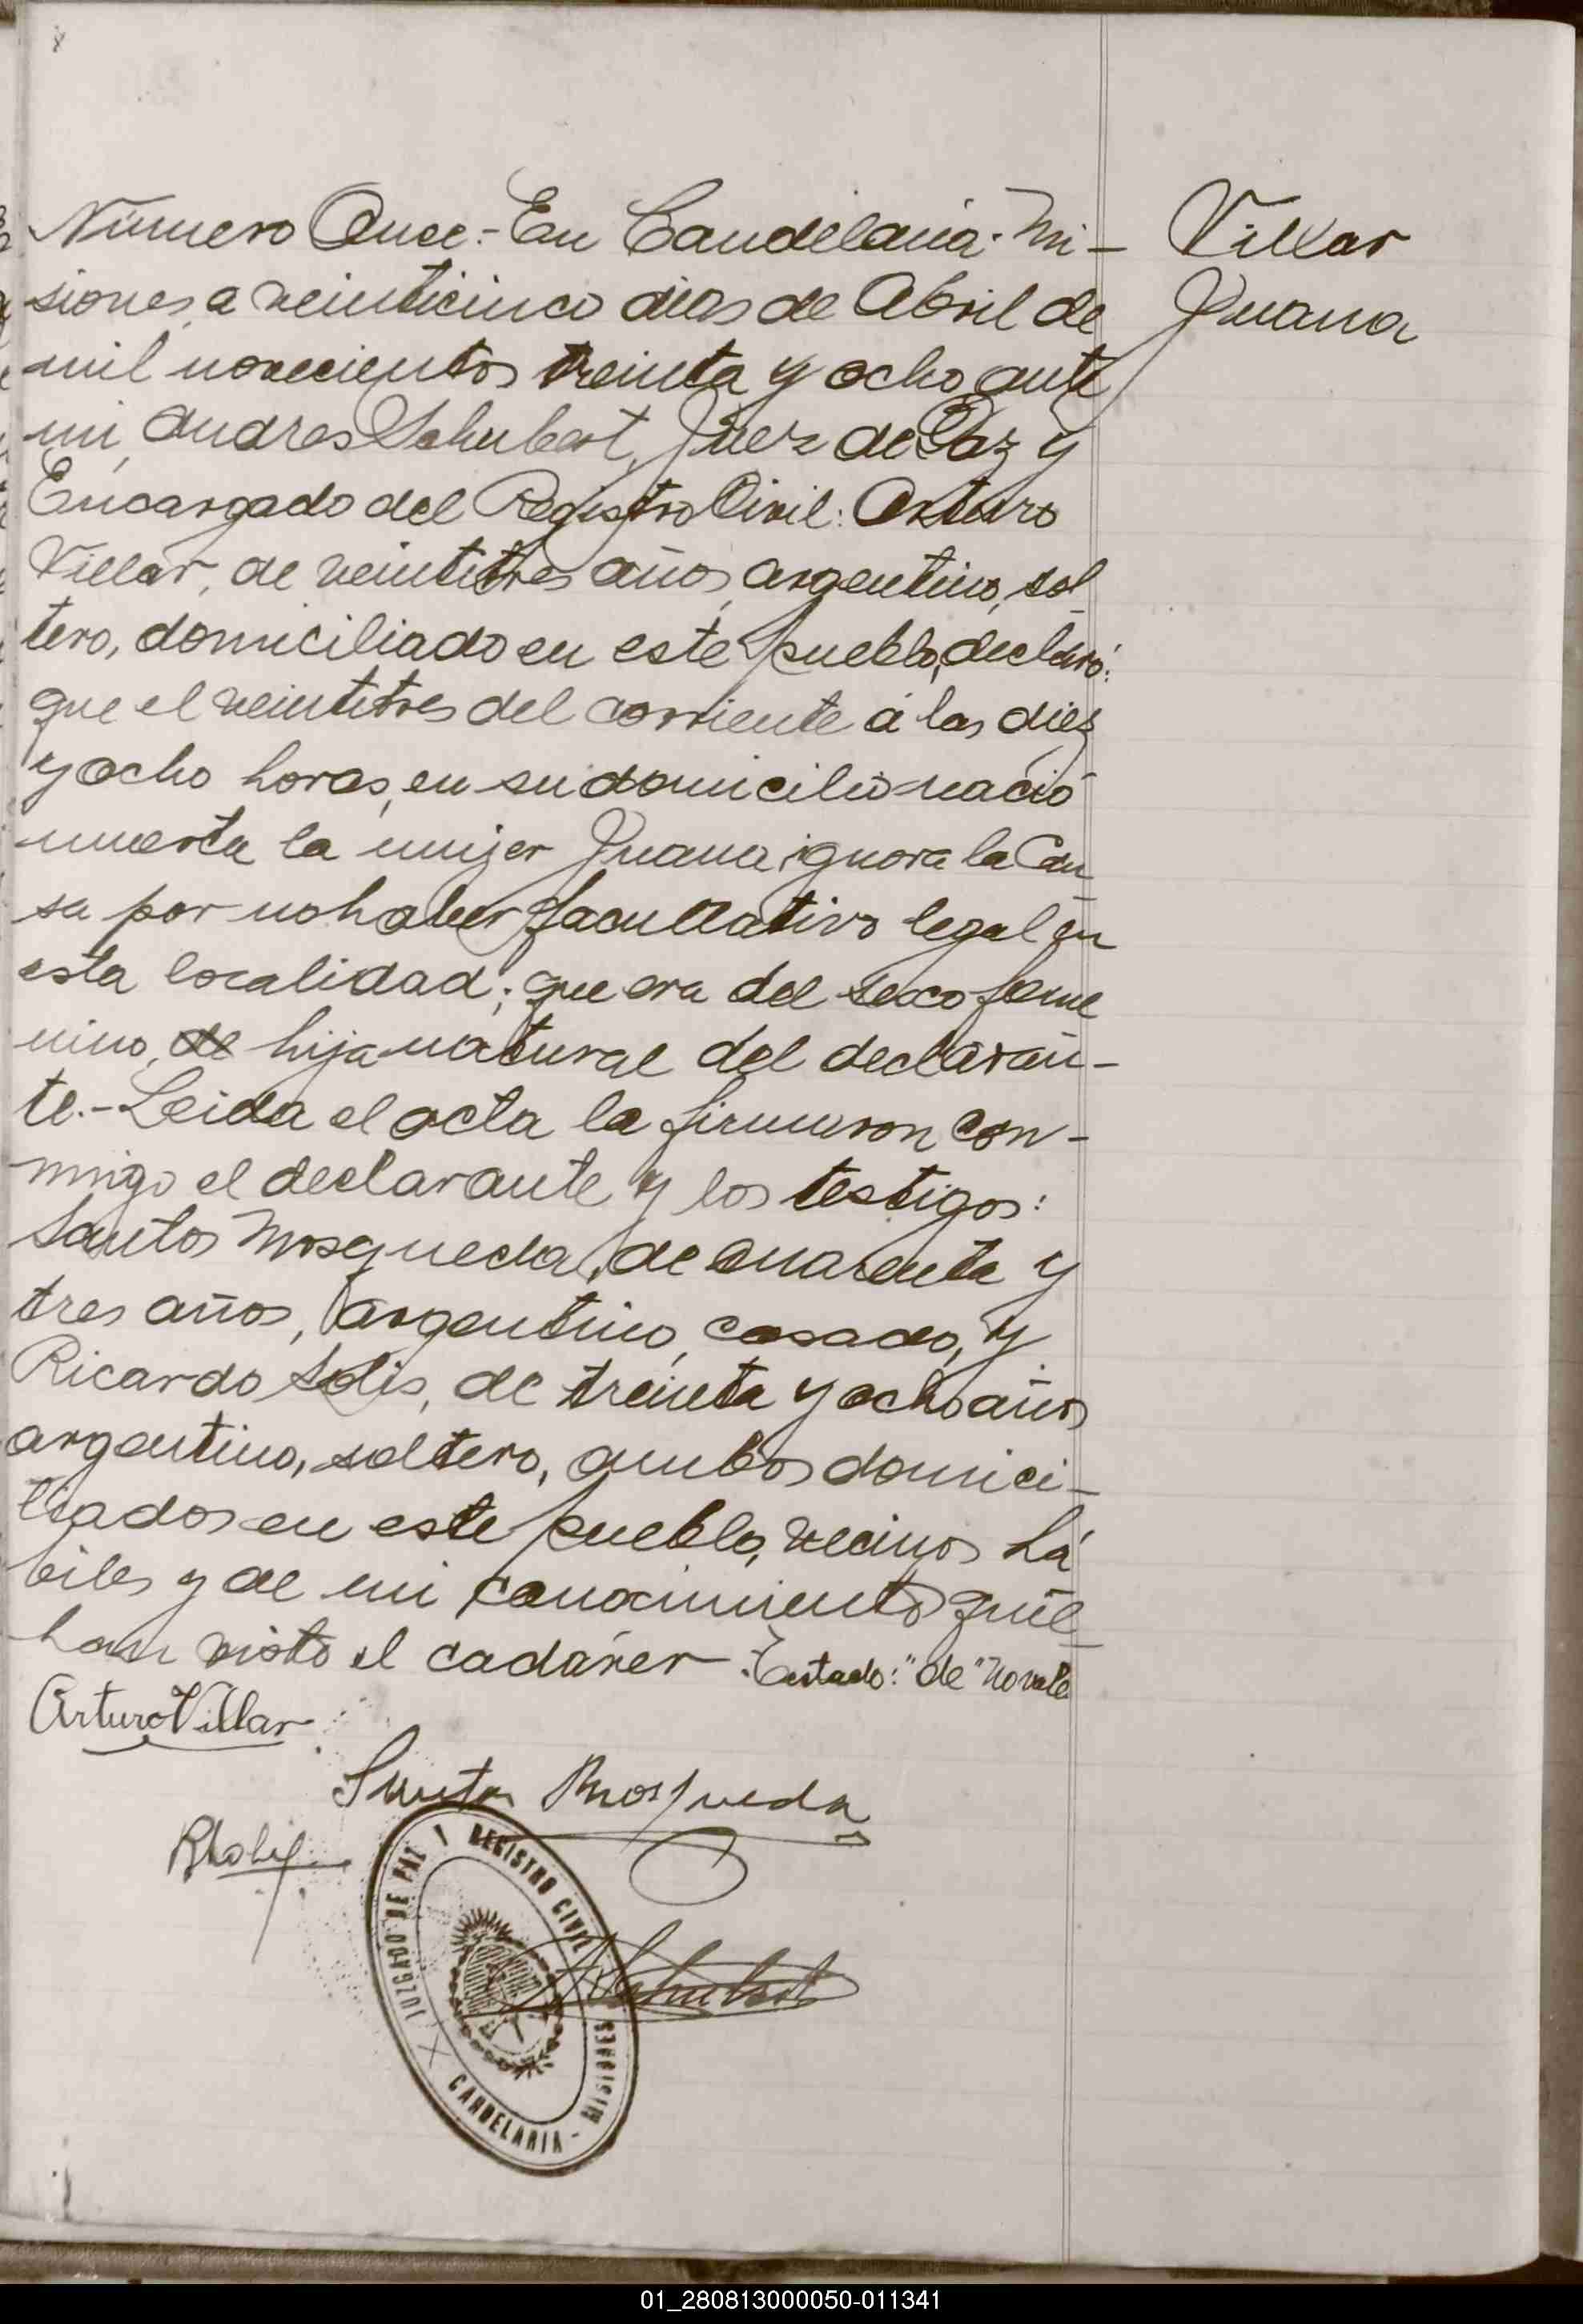 Número Once.- En Candelaria. Mi-
siones, a veinticinco dias de Abril de
mil novecientos treinta y ocho ante
mi, Andres Schubert, Juez de Paz y
Encargado del Registro Civil: Arturo
Villar, de veintitres años, argentino, sol
tero, domiciliado en este pueblo, declaró:
que el veintitres del corriente á las diez
y ocho horas, en su domicilio nació
muerta la mujer Juana ignora la Cau
sa por no haber facultativo legal en
esta localidad; que era del sexo feme
nino, de hija natural del declaran-
te.- Leida el acta la firmaron con-
migo el declarante y los testigos:
Santos Mosqueda, de cuarenta y
tres años, argentino, casado, y
Ricardo Solis, de treinta y ocho años
argentino, soltero, ambos domici-
liados en este pueblo, vecinos há
biles y de mi conocimiento que
han visto el cadáver. Testado: "de" No vale
Villar
Juana
Arturo Villar
Santos Mosqueda
RSolis
ASchubert
JUZGADO DE PAZ Y REGISTRO CIVIL
CANDELARIA - MISIONES
01_280813000050-011341